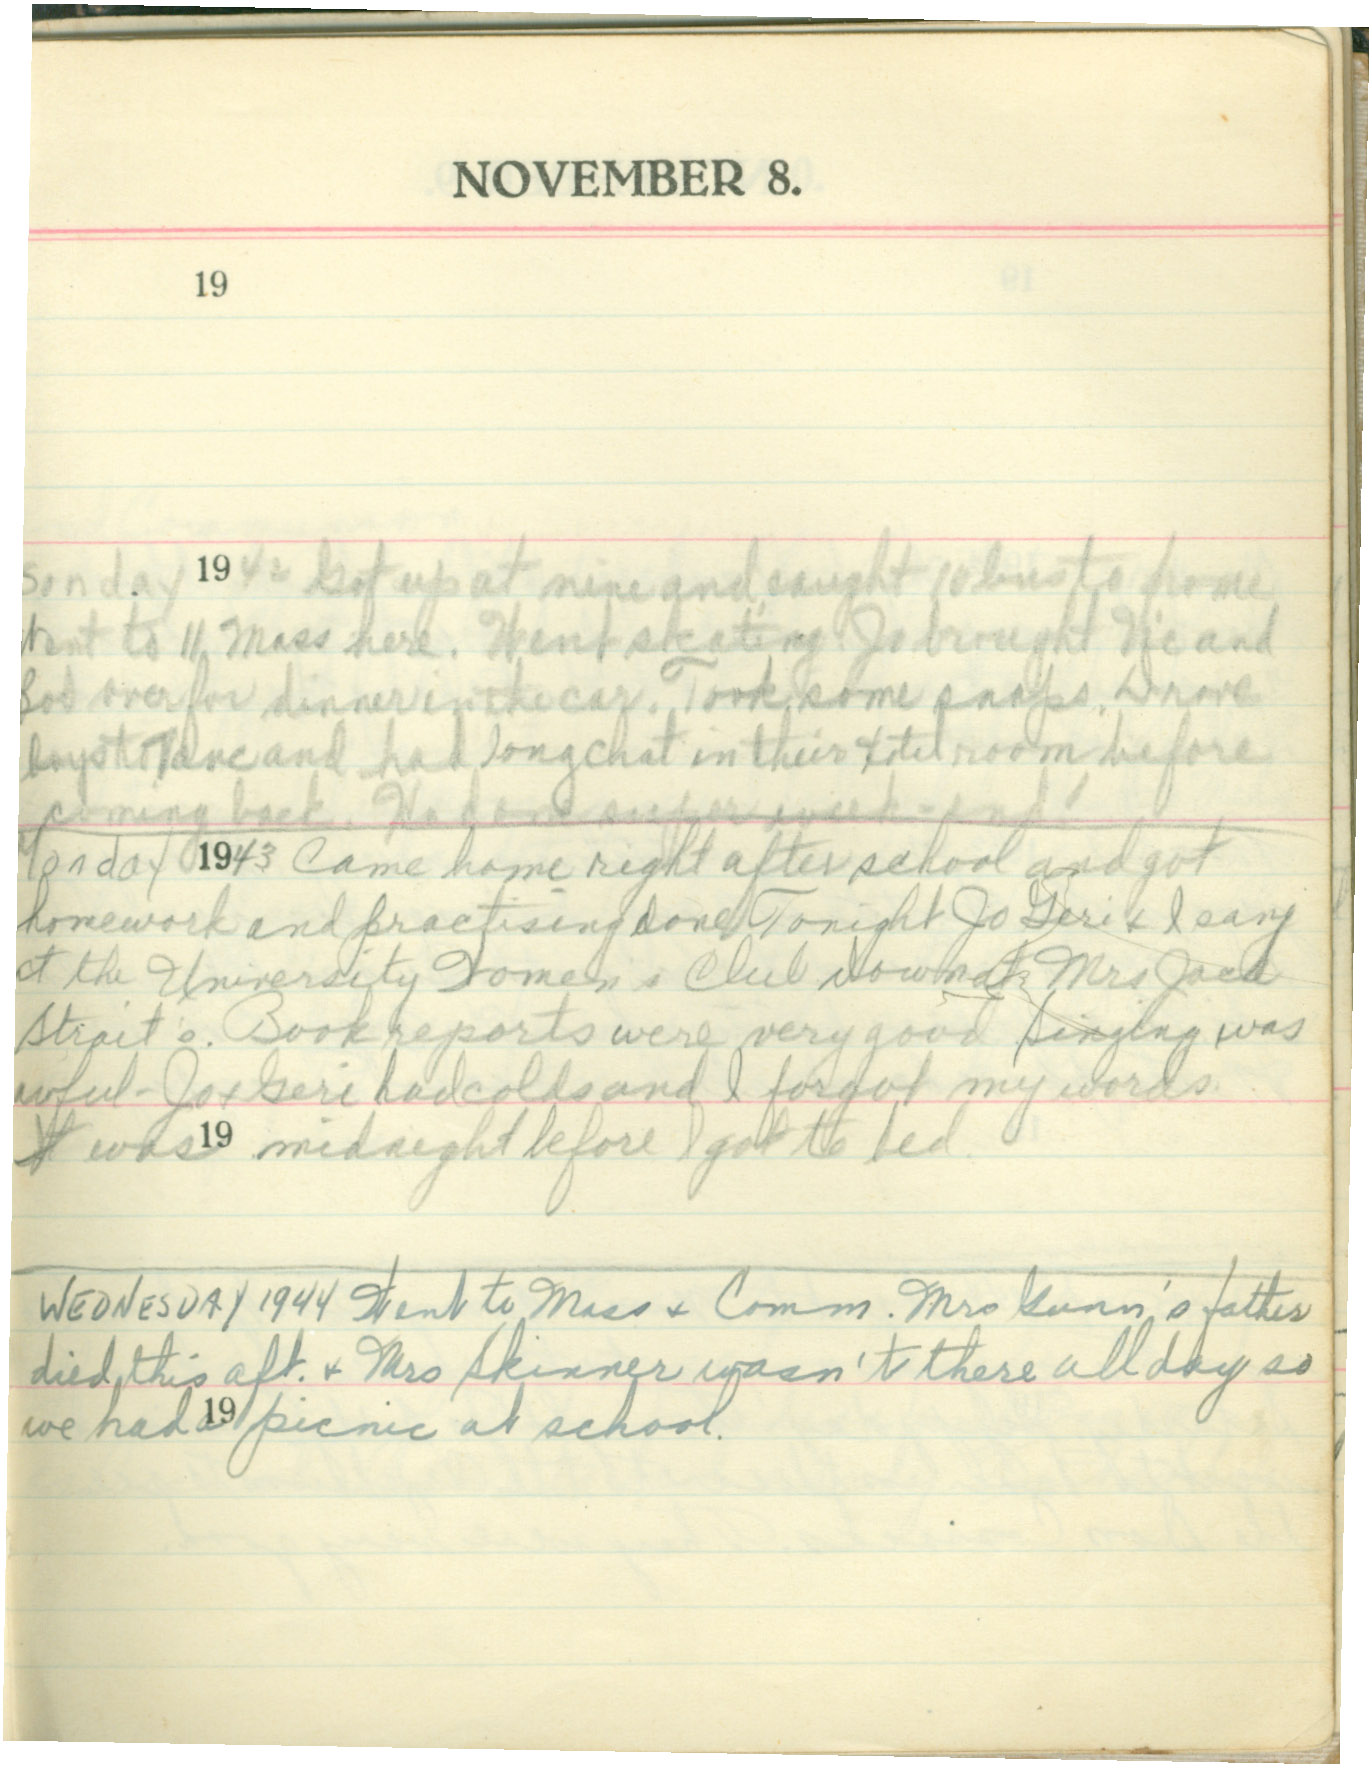 NOVEMBER 8.
19
Sunday 1942 Got up at nine and caught 10 bus to home
Went to 11 Mass here. Went skating. Jo brought Vic and
Bob over for dinner in the car. Took some snaps. Drove
boys to and had long chat in their hotel room before
coming back. Had one super week-end!
Monday 1943 Came home right after school and got
homework and practising done. Tonight Jo Geri & I sang
at the University Women's Club down at Mrs Jack
Strait's. Book reports were very good Singing was
awful - Jo & Geri had colds and I forgot my words.
It was 19 midnight before I got to bed.
WEDNESDAY 1944 Went to Mass & Comm. Mrs Gunn's father
died this aft. & Mrs Skinner wasn't there all day so
we had a 19 picnic at school.